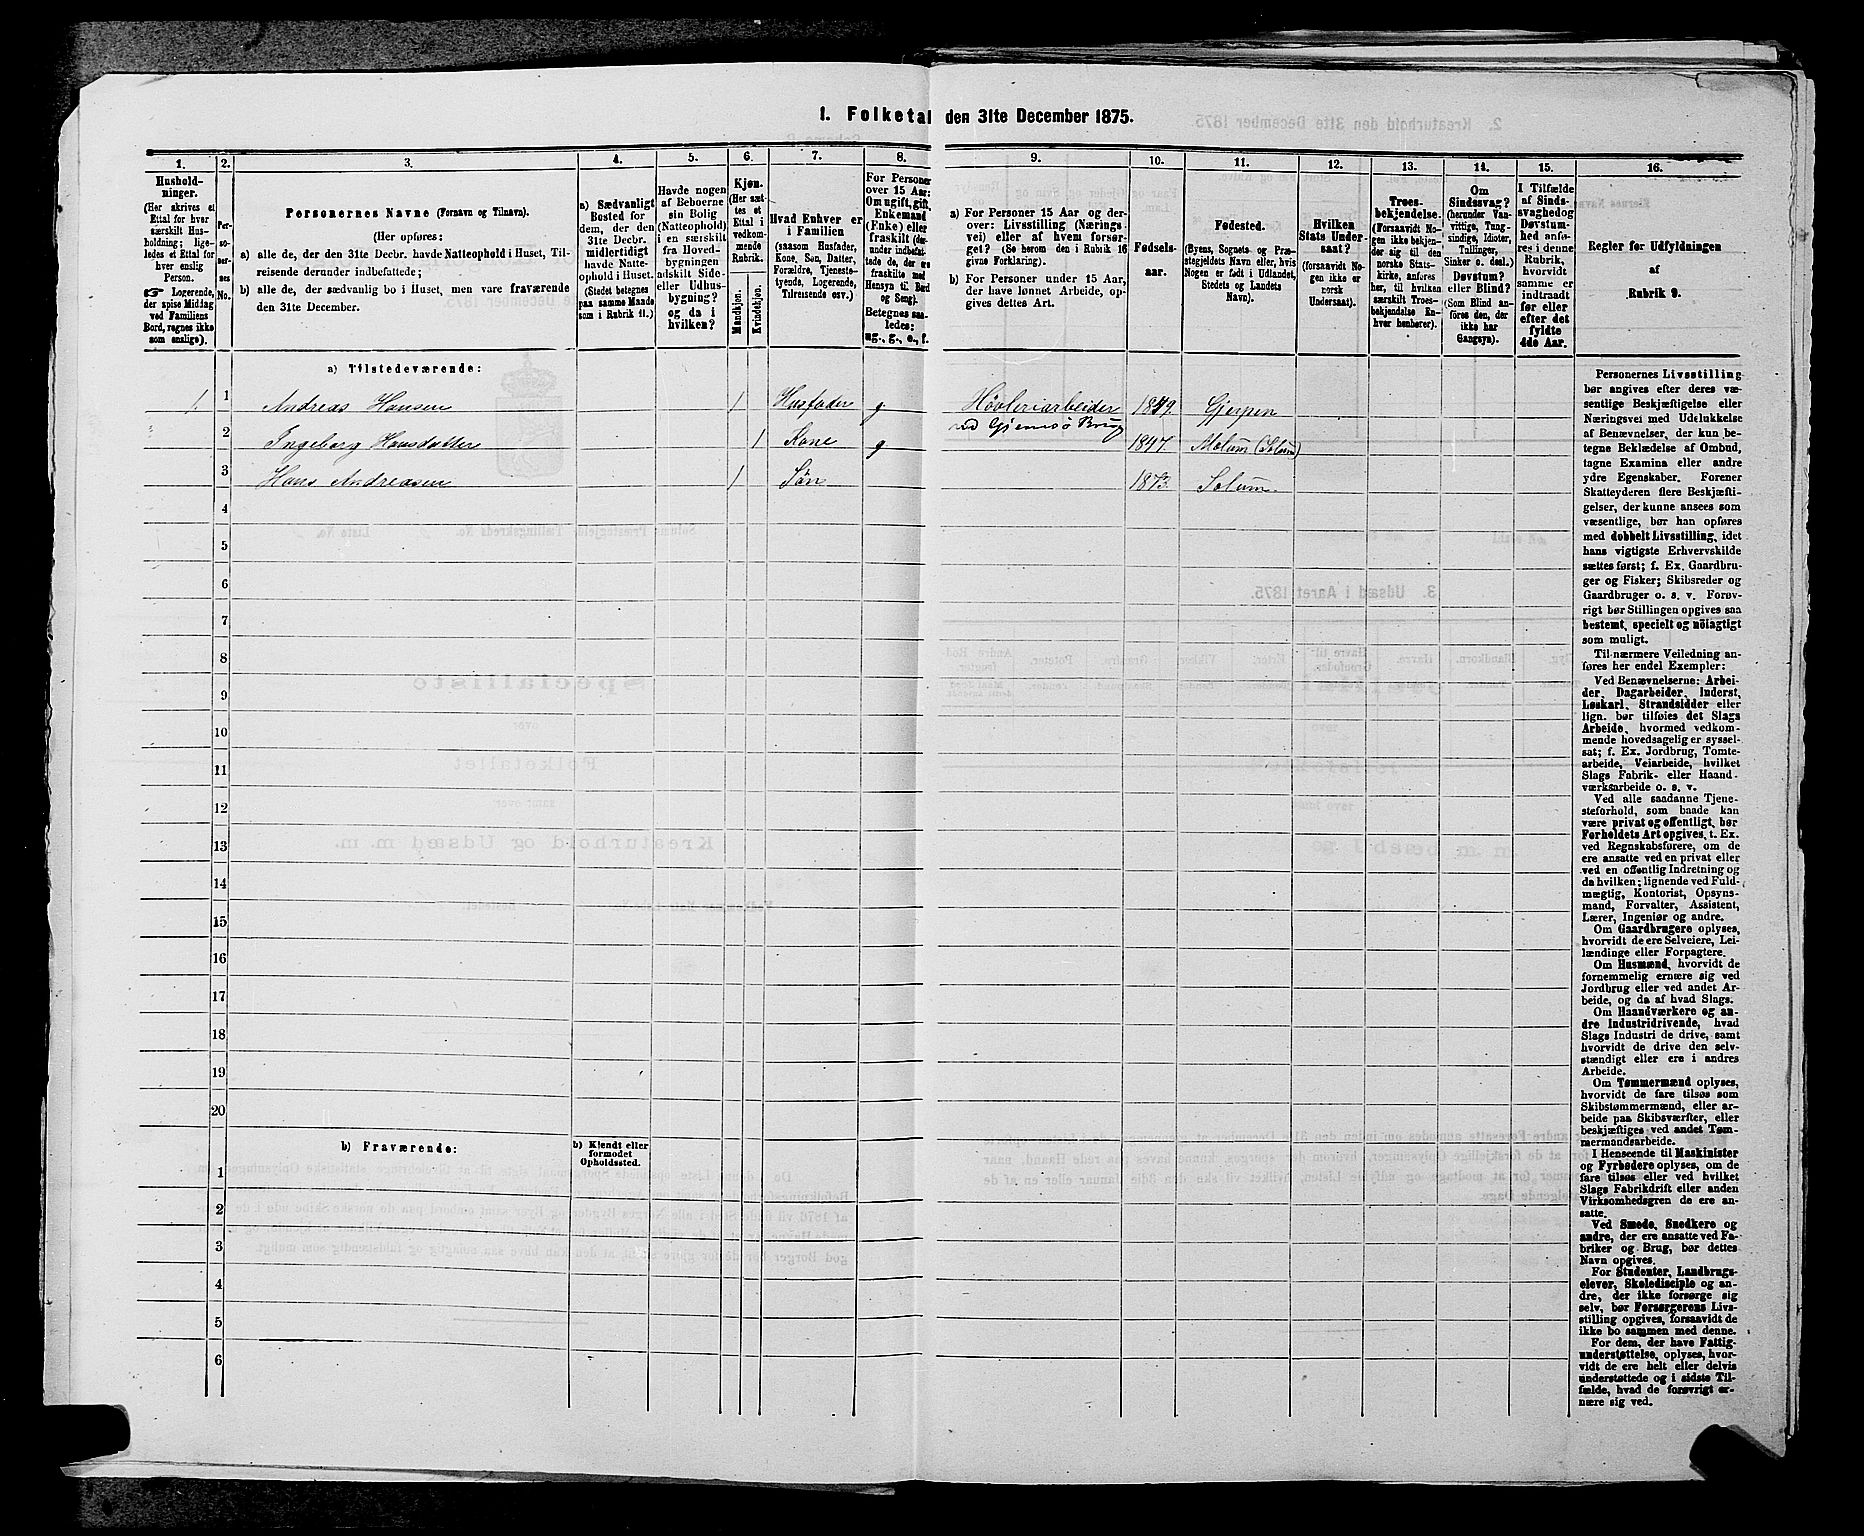 1. Folketal den 31te December 1875.
1.
2.
3.
4.
5.
6.
7.
8.
9.
10.
11.
12.
13.
14.
15.
16.
Hushold-
ninger.
(Her skrives et
Ettal for hver
særskilt Hus-
holdning; lige-
ledes et Ettal for
hver enslig
Person.
☞ Logerende,
der spise Middag
ved Familiens
Bord, regnes ikke
som enslige).
Per-
so-
ner-
nes
No.
Personernes Navne (Fornavn og Tilnavn).
(Her opføres:
a) alle de, der den 31te Decbr. havde Natteophold i Huset, Til-
reisende derunder indbefattede;
b) alle de, der sædvanlig bo i Huset, men vare fraværende
den 31te December.
a) Sædvanligt
Bosted for
dem, der den
31te Decbr.
midlertidigt
havde Natte-
ophold i Huset.
(Stedet betegnes
paa samme Maade
som i Rubrik 11.)
Havde nogen
af Beboerne
sin Bolig
(Natteophold)
i en særskilt
fra Hoved-
bygningen
adskilt Side-
eller Udhus-
bygning?
og da i
hvilken?
Kjøn.
(Her sæt-
tes et
Ettal i
vedkom-
mende
Rubrik.
Mandkjøn.
Kvindekjøn.
Hvad Enhver er
i Familien
(saasom Husfader,
Kone, Søn, Datter,
Forældre, Tjeneste-
tyende, Logerende,
Tilreisende osv.)
For Personer
over 15 Aar:
Om ugift, gift,
Enkemand
(Enke) eller
fraskilt (der-
under indbefat-
tede de, der ere
fraskilte med
Hensyn til Bord
og Seng).
Betegnes saa-
ledes:
ug., g., e., f.
a) For Personer 15 Aar og der-
over: Livsstilling (Nærings-
vei) eller af hvem forsør-
get? (Se herom den i Rubik 16
givne Forklaring).
b) For Personer under 15 Aar,
der have lønnet Arbeide, op-
gives dettes Art.
Fødsels-
aar.
Fødested.
(Byens, Sognets og Præ-
stegjeldets Navn eller, hvis
Nogen er født i Udlandet,
Stedets og Landets
Navn).
Hvilken
Stats Under-
saat?
(forsaavidt No-
gen ikke er
norsk
Undersaat).
Troes-
bekjendelse.
(Forsaavidt No-
gen ikke bekjen-
der sig til den
norske Stats-
kirke, anføres
her, til hvilken
særskilt Troes-
bekjendelse En-
hver henhører).
Om
Sindssvag?
(herunder Van-
vittige, Tung-
sindige, Idioter,
Tullinger,
Sinker o. desl.)
Døvstum?
eller Blind?
(Som Blind an-
føres den, der
ikke har
Gangsyn).
I Tilfælde
af Sinds-
svaghed og
Døvstum-
hed anfø-
res i denne
Rubrik,
hvorvidt
samme er
indtraadt
før eller
efter det
fyldte
4de Aar.
Regler for Udfyldningen
af
Rubrik 9.
a) Tilstedeværende:
1. 1 Andreas Hansen 1 Husfader g Høvleriarbeider 1849. Gjerpen
ved Gjemsø Brug
" 2 Ingeborg Hansdatter 1 Kone g 1847. Molum (Solum)
3 Hans Andreasen 1 Søn 1873. Solum.
4
5
6
7
8
9
10
11
12
13
14
15
16
17
18
19
20
b) Fraværende:
b) Kjendt eller
formodet
Opholdssted.
1
2
3
4
5
6
Personernes Livsstilling
bør angives efter deres væ-
sentlige Beskjæftigelse eller
Næringsvei med Udelukkelse
af Benævnelser, der kun be-
tegne Beklædelse af Ombud,
tagne Examina eller andre
ydre Egenskaber. Forener
Skatteyderen flere Beskjæfti-
gelser, der kunne ansees som
væsentlige, bør han opføres
med dobbelt Livsstilling, idet
hans vigtigste Erhvervskilde
sættes først; f. Ex. Gaardbru-
ger og Fisker; Skibsreder og
Gaardbruger o. s. v. Forøv-
rigt bør Stillingen opgives saa
bestemt, specielt og nöiagtigt
som muligt.
Til nærmere Veiledning an-
føres her endel Exempler:
Ved Benævnelserne: Arbei-
der, Dagarbeider, Inderst,
Løskarl, Strandsidder eller
lign. bør tilføies det Slags
Arbeide, hvormed vedkom-
mende hovedsagelig er syssel-
sat; f. Ex. Jordbrug, Tomte-
arbeide, Veiarbeide, hvilket
Slags Fabrik- eller Haand-
værksarbeide o. s. v.
Ved alle saadanne Tjene-
steforhold, som baade kan
være privat og offentligt, bør
Forholdets Art opgives, t. Ex.
ved Regnskabsførere, om de
ere ansatte ved en privat eller
ved en offentlig Indretning og
da hvilken; lignende ved Fuld-
mægtig, Kontorist, Opsyns-
mand, Forvalter, Assistent,
Lærer, Ingeniør og andre.
Om Gaardbrugere oplyses,
hvorvidt de ere Selveiere, Lei-
lændinge eller Forpagtere.
Om Husmænd, hvorvidt de
fornemmelig ernære sig ved
Jordbrug eller ved andet Ar-
beide, og da af hvad Slags.
Om Haandværkere og an-
dre Industridrivende, hvad
Slags Industri de drive, samt
hvorvidt de drive den selv-
stændigt eller ere i andres
Arbeide.
Om Tømmermænd oplyses,
hvorvidt de fare tilsøs som
Skibstømmermænd, eller ar-
beide paa Skibsværfter, eller
beskjæftiges ved andet Tøm-
mermandsarbeide.
I Henseende til Maskinister
og Fyrbødere oplyses, om de
fare tilsøs eller ved hvilket
Slags Fabrikdrift eller anden
Virksomhedsgren de ere an-
satte.
Ved Smede, Snedkere og
andre, der ere ansatte ved Fa-
briker og Brug, bør dettes
Navn opgives.
For Studenter, Landbrugs-
elever, Skoledisciple og an-
dre, der ikke forsørge sig
selv, bør Forsørgerens Livs-
stilling opgives, forsaavidt de
ikke bo sammen med denne.
For dem, der have Fattig-
understøttelse, oplyses, hvor-
vidt de ere helt eller delvis
understøttede og i sidste Til-
fælde, hvad de forøvrigt er-
nære sig ved.